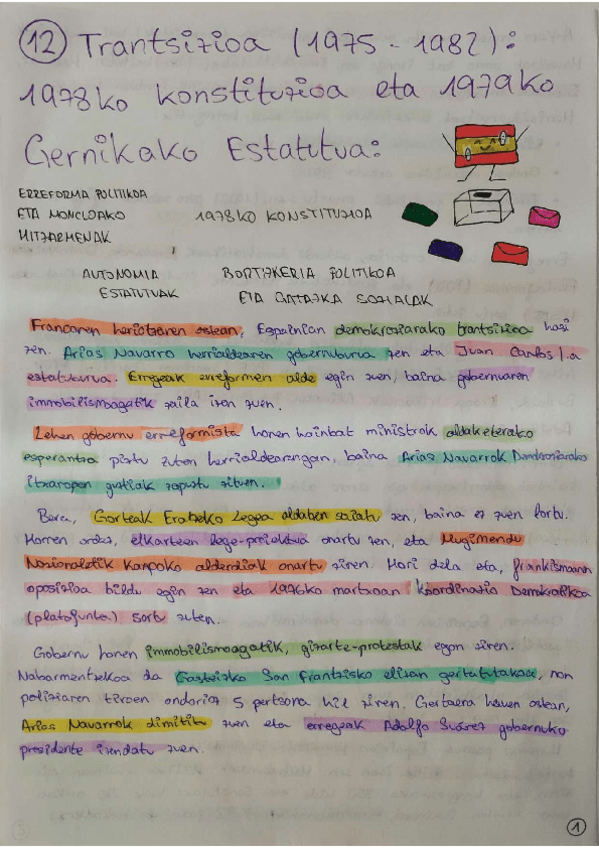 12 Trantsizioa (1975 - 1982):
1978ko konstituzioa eta 1979ko
Gernikako Estatutua:
ERREFORMA POLITIKOA
ETA MONCLOAKO
HITZARMENAK
1978KO KONSTITUZIOA
AUTONOMIA
ESTATUTUAK
BORTIZKERIA POLITIKOA
ETA GATAZKA SOZIALAK
Francoren heriotzaren ostean, Espainian demokraziarako trantsizioa hasi
zen. Arias Navarro herrialdearen gobernuburua zen eta Juan Carlos I.a
estatuburua. Erregeak erreformen alde egin zuen, baina gobernuaren
immobilismoagatik zaila izan zuen.
Lehen gobernu erreformista honen hainbat ministrok aldaketerako
esperantza piztu zuten herrialdearengan, baina Arias Navarrok
itxaropen guztiak zapuztu zituen.
Beraz, Gorteak Eratzeko Legea aldatzen saiatu zen, baina ez zuen lortu.
Horren ordez, elkarteen lege-proiektua onartu zen, eta Mugimendu
Nazionaletik kanpoko alderdiak onartu ziren. Hori dela eta, frankismoaren
oposizioa bildu egin zen eta 1976ko martxoan Koordinazio Demokratikoa
(platajunta) sortu zuten.
Gobernu honen immobilismoagatik, gizarte-protestak egon ziren.
Nabarmentzekoa da Gasteizko San Frantzisko elizan gertatutakoa, non
poliziaren tiroen ondorioz 5 pertsona hil ziren. Gertaera hauen ostean,
Arias Navarrok dimititu zuen eta erregeak Adolfo Suárez gobernuko
presidente izendatu zuen.
1